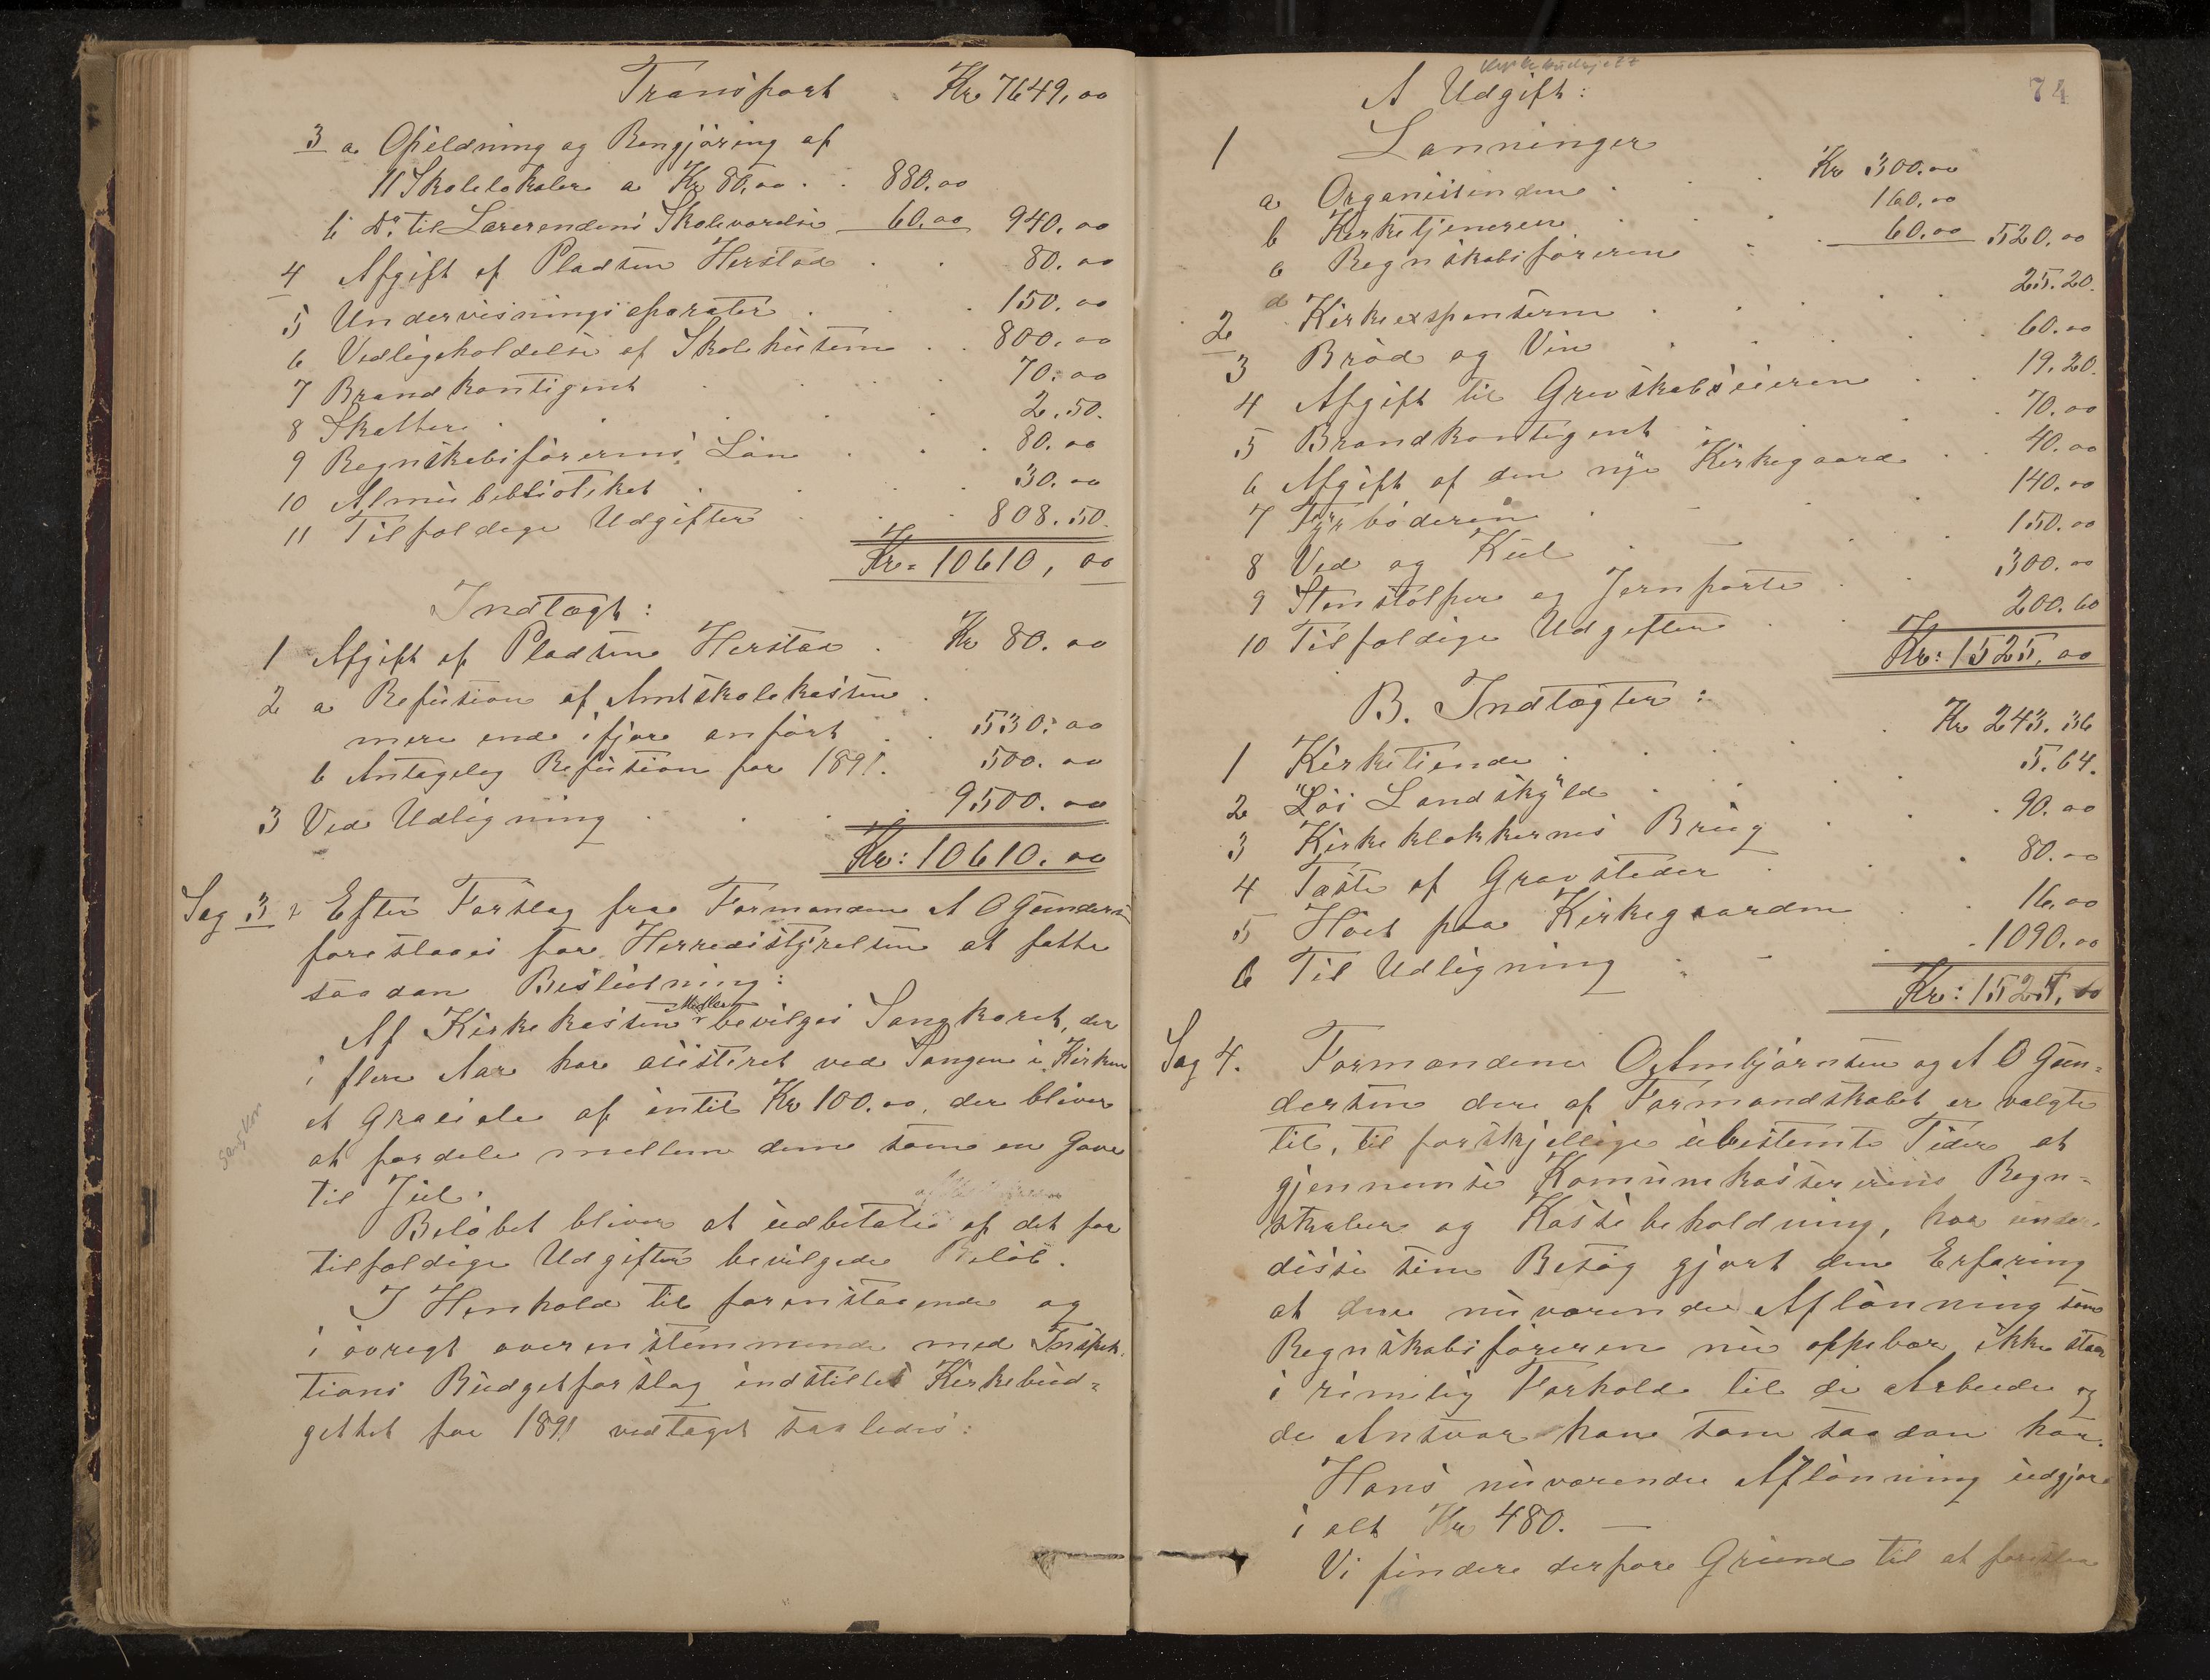 Transport Kr 7649,00
3 a Opildning og Rengjøring af
11 Skolelokaler a Kr 80,00 . . 880.00
b do. til Lærerendens Skoleværelse 60.00 940.00
4 Afgift af Pladsen Herstad . . 80.00
5 Undervisningsaparater . . . 150.00
6 Vedligeholdelse af Skolehusene . . 800.00
7 Brandkontigent . . . . 70.00
8 Skatter . . . . . 2.50.
9 Regnskabsførerens Løn . . . 80.00
10 Almuebibliotekets . . . . 30.00
11 Tilfældige Udgifter . . . 808.50.
Kr = 10610,00
Indtægt:
1 Afgift af Pladsen Herstad . Kr 80.00
2 a Refusion af Amtskolekassen .
mere end ifjor anført . . 530.00
b Antagelig Refusion for 1891. 500.00
3 Ved Udligning . . . . 9500.00
Kr: 10610.00
Sag 3 Efter Forslag fra Formanden A O Gunders
foreslaaes for Herredsstyrelsen at fatte
saadan Beslutning:
Af Kirkekassen bevilges Sangkoret, der
i flere Aar har assisteret ved Sangen i Kirken
et Graciale af intil Kr 100.00, der bliver
at fordele mellem dem som en Gave
til Jul.
Sangkor
Beløbet bliver at udbetale af det for
tilfældige Udgifter bevilgede Beløb.
I Henhold til foranstaaende og
i øvrigt overenstemmende med Inspek-
tions Budgetforslag indstilles Kirkebud-
gettet for 1891 vedtaget saaledes:
Kirkebudsjett
74
A Udgift:
1 Lønninger
a Organistinden . . . Kr 300.00
b Kirketjeneren . . . 160.00
c Regnskabsføreren . . 60.00 520.00
d
2 Kirkeexspenserne . . . . . 25.20.
3 Brød og Vin . . . . . 60.00
4 Afgift til Grevskabseieren . . 19.20.
5 Brandkontigent . . . . 70.00
6 Afgift af den nye Kirkegaard . . 40.00
7 Fyrbøderen . . . . 140.00
8 Ved og Kul . . . . 150.00
9 Stenstolper og Jernporte . . 300.00
10 Tilfældige Udgifter . . 200.60
Kr: 1525.00
B. Indtægter:
1 Kirketiende . . . . Kr 243.36
2 Løs Landskyld . . . . 5.64.
3 Kirkeklokkernes Brug . . . 90.00
4 Fæste af Gravsteder . . . 80.00
5 Høet paa Kirkegaarden . . 16.00
6 Til Udligning . . . . 1090.00
Kr: 1525,00
Sag 4. Formændene O. Ambjørnsen og A O Gun-
dersen der af Formandskabet er valgte
til, til forskjellige ubestemte Tider at
gjennemse Komunekassererens Regn-
skaber og Kassebeholdning, har under
disse sine Besøg gjort den Erfaring
at den nuværende Aflønning som
Regnskabsføreren nu oppebær ikke staar
i rimelig Forhold til de Arbeide og
de Ansvar han som saadan har.
Hans nuværende Aflønning udgjør
i alt Kr 480. —
Vi finder derfor Grund til at foreslaa